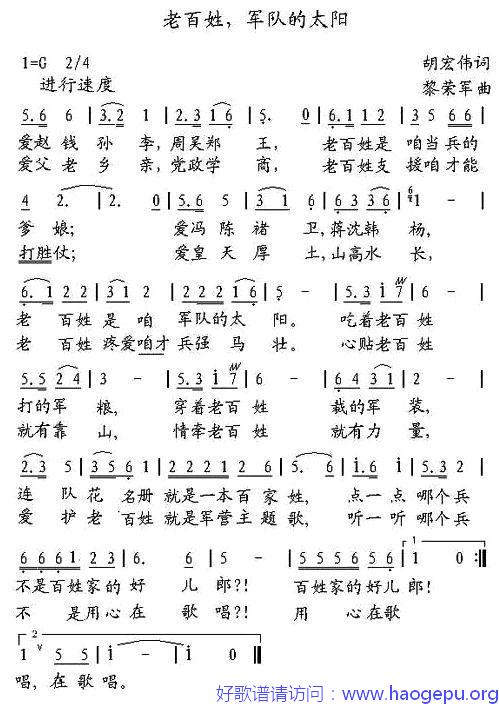 老百姓，军队的太阳
1=G 2/4 胡宏伟词
进行速度 黎荣军曲
5.6 6 | 3.2 1 | 2.3 1 6 | 5. 0 | 6.1 1 2 | 5.6 6 |
爱赵钱孙李，周吴郑王，老百姓是咱当兵的
爱父老乡亲，党政学商，老百姓支援咱才能
4 2. | 2. 0 | 5.6 5 | 2 3 1 6 | 3.3 3 6 | 1 - |
爹娘；爱冯陈褚卫，蒋沈韩杨，
打胜仗；爱皇天厚土，山高水长，
6. 1 2 2 | 3 1 2 | 2 2 2 1 6 | 5 - | 5.3 i 7 | 6 - |
老百姓是咱军队的太阳。吃着老百姓
老百姓疼爱咱才兵强马壮。心贴老百姓
5.5 2 4 | 3 - | 5.3 i 7 | 6 - | 6 4 3 1 | 2 - |
打的军粮，穿着老百姓裁的军装，
就有靠山，情牵老百姓就有力量，
2.3 5 | 3 5 6 1 | 2 1 2 1 2 6 | 5. 6 | i.6 i | i.6 5 |
连队花名册就是一本百家姓，点一点哪个兵
爱护老百姓就是军营主题歌，听一听哪个兵
6 6 6 1 | 2 3 | 6. 6 | 5 - | 5 5 5 6 5 | 1 0 :|
不是百姓家的好儿郎？！百姓家的好儿郎！
不是用心在歌唱？！用心在歌
1 5 5 | i - | i 0 ||
唱，在歌唱。
好歌谱请访问：www.haogepu.org